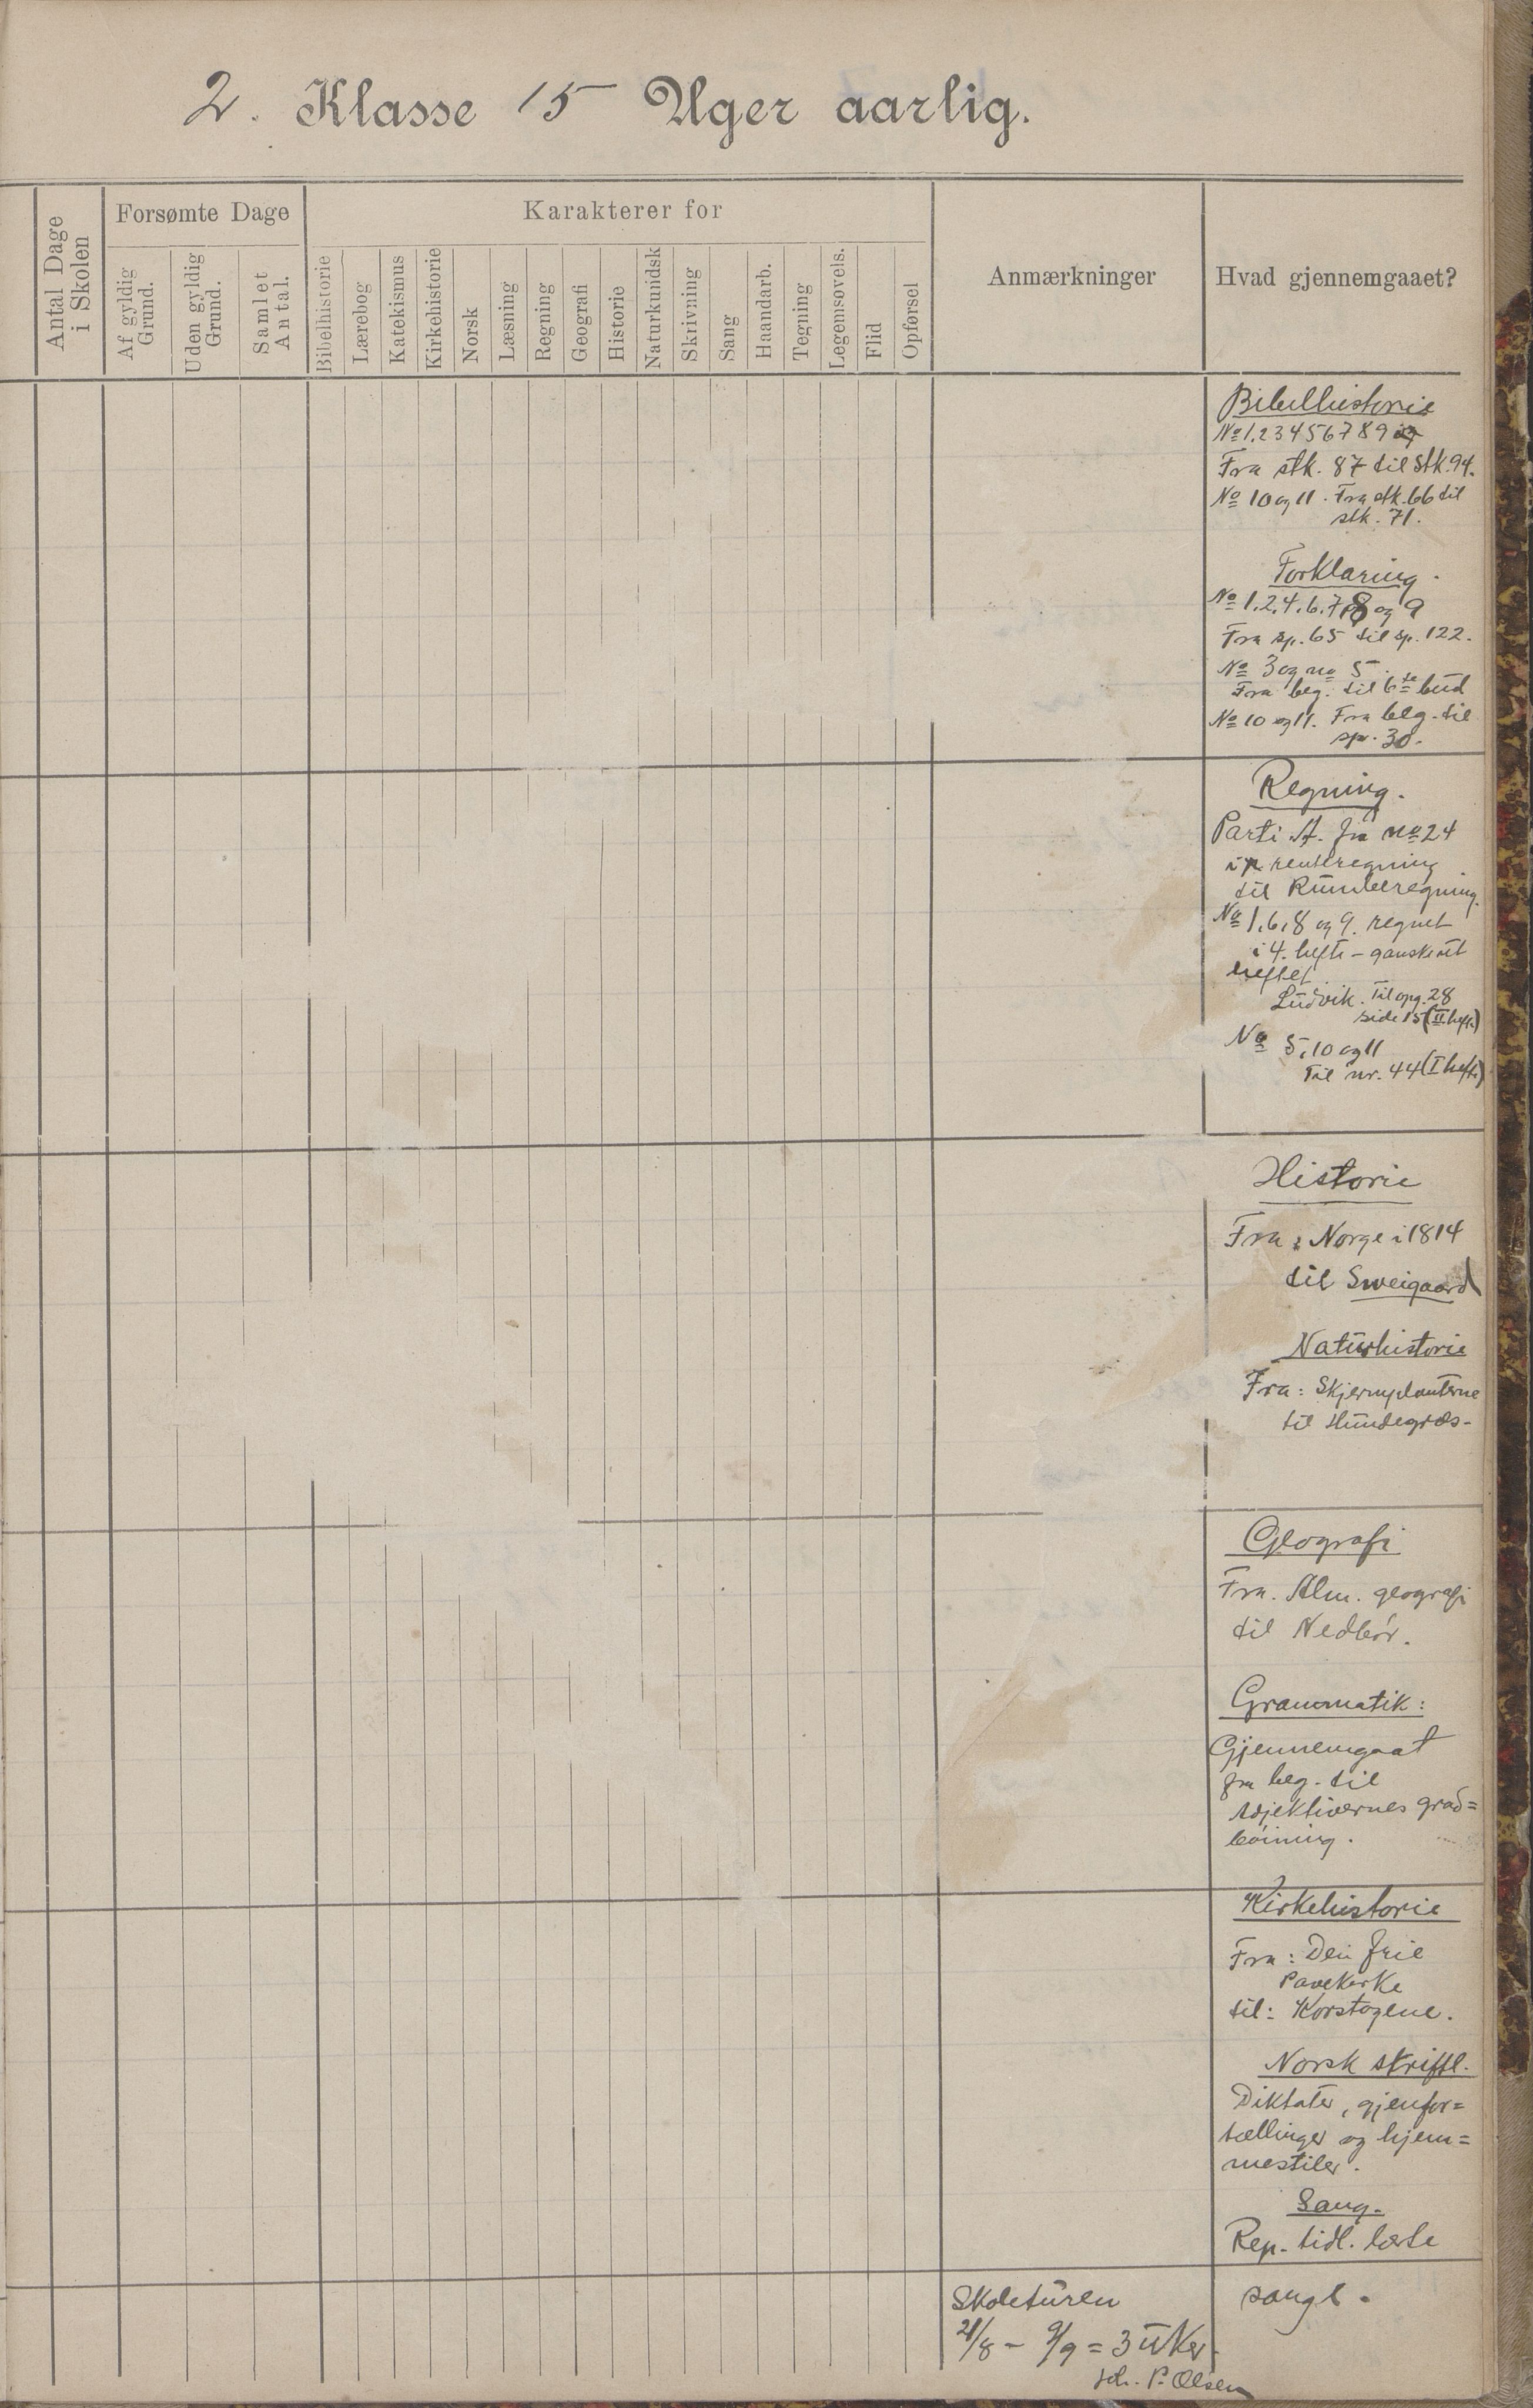 2. Klasse 15 Uger aarlig.
Antal Dage i Skolen
Forsømte Dage
Af gyldig Grund.
Uden gyldig Grund.
Samlet Antal.
Karakterer for
Bibelhistorie
Lærebog
Katekismus
Kirkehistorie
Norsk
Læsning
Regning
Geografi
Historie
Naturkundsk
Skrivning
Sang
Haandarb.
Tegning
Legemsøvels.
Flid
Opførsel
Anmærkninger
Hvad gjennemgaaet?
Bibelhistorie
No 1.23456789
Fra stk. 87 til stk. 94.
No 10 og 11. Fra stk. 66 til
stk. 71.
Forklaring.
No 1.2.4.6.7.8 og 9
Fra sp. 65 til sp. 122.
No 3 og no 5.
Fra beg. til 6te bud
No 10 og 11. Fra beg. til
sp. 30.
Regning.
Parti A. fra no 24
i renteregning
til Rumberegning.
No 1,6,8 og 9. regnet
i 4. hefte – ganske ut
heftet
Ludvik. Til opg. 28
side 15 (II heft.)
No 5,10 og 11
Til nr. 44 (I hefte)
Historie
Fra : Norge i 1814
til Sweigaard
Naturhistorie
Fra : Skjermplanterne
til Hundegræs-
Geografi
Fra. Alm. geografi
til Nedbør.
Grammatik :
Gjennemgaat
fra beg. til
adjektivernes grad=
bøining.
Kirkehistorie
Fra : Den frie
Pavekirke
til : Korstogene.
Norsk skriftl.
Diktater, gjenfor=
tællinger og hjem=
mestiler.
Sang.
Rep. tidl. lærte
sange.
Skoleturen
21/8 – 9/9 = 3 uker.
Joh. P. Olsen